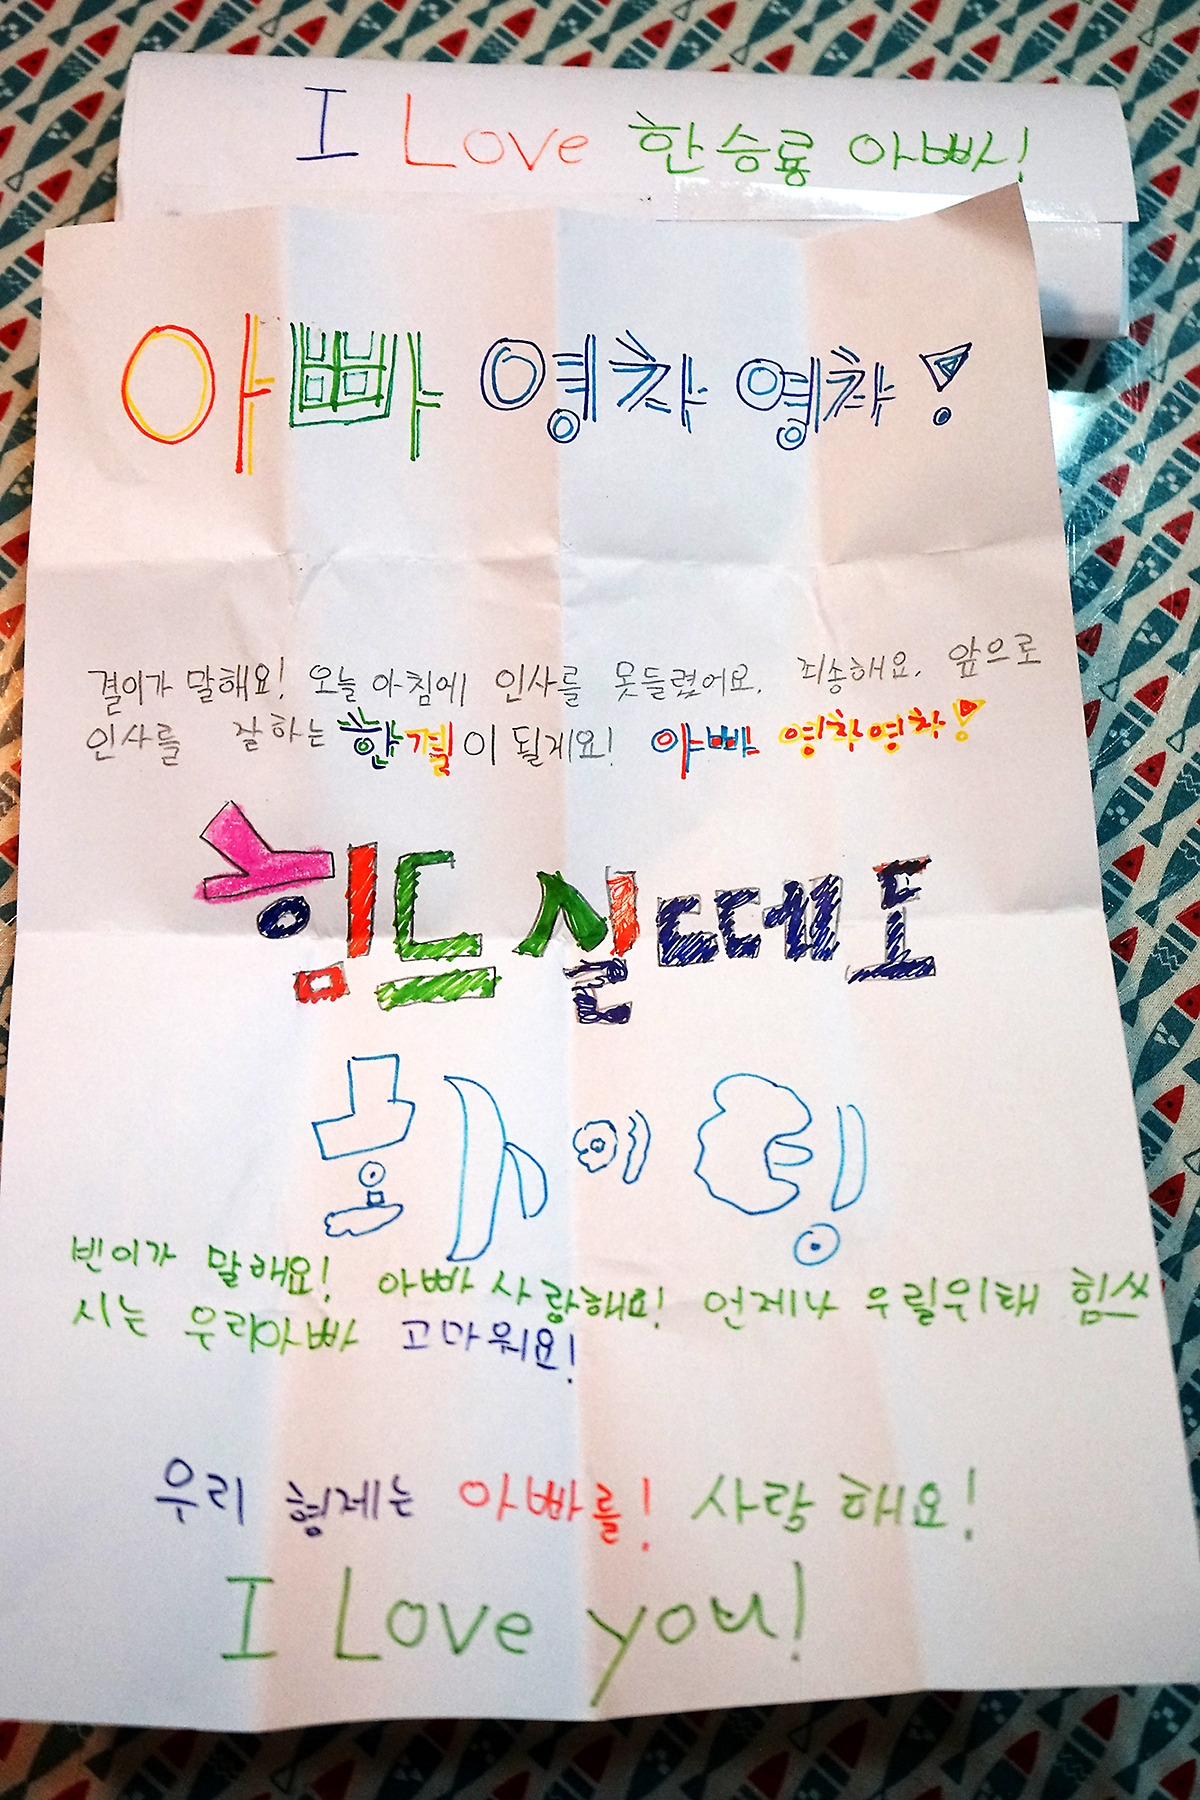 I Love 한승룡 아빠!
아빠 영차 영차!
결이가 말해요! 오늘 아침에 인사를 못들렸어요. 죄송해요. 앞으로
인사를 잘하는 한결이 될게요! 아빠 영차영차!
힘드실떼도
화이팅
빈이가 말해요! 아빠 사랑해요! 언제나 우릴위해 힘쓰
시는 우리아빠 고마워요!
우리 형제는 아빠를! 사랑 해요!
I Love you!